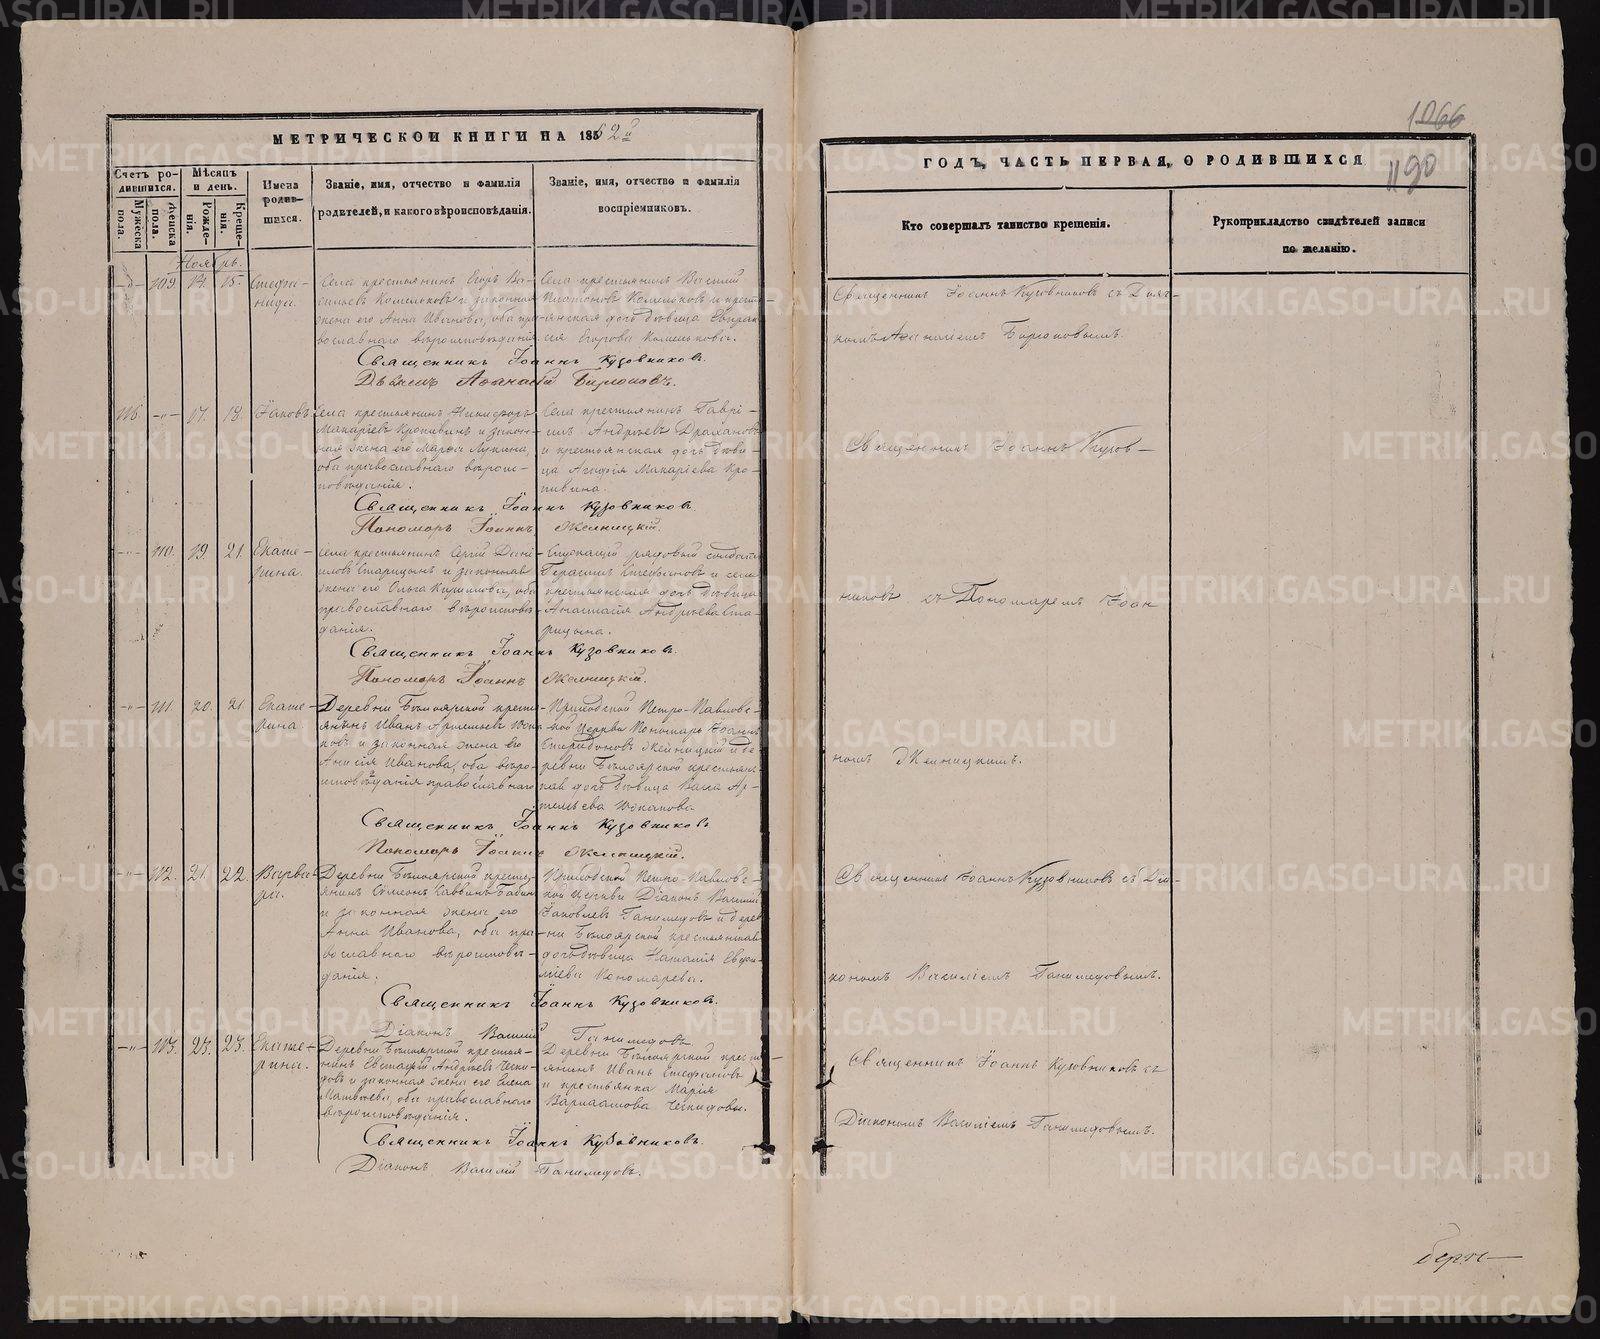 1066
МЕТРИЧЕСКОЙ КНИГИ НА 1852й
Счетъ ро-
дившихся.
Мѣсяцъ
и день.
Имена
родив-
шихся.
Званіе, имя, отчество и фамилія
родителей, и какого вѣроисповѣданія.
Званіе, имя, отчество и фамилія
воспріемниковъ.
Мужеска
пола.
Женска
пола.
Рожде-
нія.
Креще-
нія.
ГОДЪ, ЧАСТЬ ПЕРВАЯ, О РОДИВШИХСЯ
1190
Кто совершалъ таинство крещенія.
Рукоприкладство свидѣтелей записи
по желанію.
Ноябрь.
109. 14. 15. Стефа-
нида.
Села крестьянинъ Егоръ Ва-
сильевъ Комельковъ и законная
жена его Анна Иванова, оба пра-
вославнаго вѣроисповѣданія
Села крестьянинъ Василій
Платоновъ Комельковъ и кресть-
янская дочь дѣвица Евпрак-
сія Егорова Комелькова.
Священникъ Іоаннъ Кузовниковъ.
Дьячекъ Аѳанасій
Священникъ Іоаннъ Кузовниковъ съ Дьяч-
комъ Аѳанасіемъ
116 17. 18. Іаковъ
Села крестьянинъ Никифоръ
Макаріевъ Кропивинъ и закон-
ная жена его Марѳа Лукина,
оба православнаго вѣроис-
повѣданія.
Села крестьянинъ Гаврі-
илъ Андреевъ
и крестьянская дочь дѣви-
ца Агафія Макаріева Кро-
пивина.
Священникъ Іоаннъ Кузовниковъ.
Пономарь Іоаннъ Желницкій.
Священникъ Іоаннъ Кузов-
110. 19. 21. Екате-
рина.
Села крестьянинъ Сергій Дані-
иловъ Старицынъ и законная
жена его Ольга оба
православнаго вѣроисповѣ-
данія.
рядовый солдатъ
Герасимъ Стефановъ и села
крестьянская дочь дѣвица
Анастасія Андреева Ста-
рицына.
Священникъ Іоаннъ Кузовниковъ.
Пономарь Іоаннъ Желницкій.
никовъ съ Пономаремъ Іоан
111. 20. 21. Екате-
рина.
Деревни Бѣлоярской кресть-
янинъ Иванъ Артемьевъ
и законная жена его
Анисія Иванова, оба вѣро-
исповѣданія православнаго
Приходской Петро-Павловс-
кой Церкви Пономарь Іоаннъ
Спиридоновъ Желницкій и де-
ревни Бѣлоярской крестьянс-
кая дочь дѣвица Васса Ар-
темьева
Священникъ Іоаннъ Кузовниковъ
Пономарь Іоаннъ Желницкій.
номъ Желницкимъ.
112. 21. 22. Варва-
ра.
Деревни Бѣлоярской кресть-
янинъ Симеонъ Саввинъ Бабинъ
и законная жена его
Анна Иванова, оба пра-
вославнаго вѣроисповѣ-
данія.
Приходской Петро-Павловс-
кой церкви Діаконъ Василій
Іаковлевъ Ганимедовъ и дерев-
ни Бѣлоярской крестьянская
дочь дѣвица Наталія Евфи-
міева Пономарева.
Священникъ Іоаннъ Кузовниковъ.
Діаконъ Василій Ганимедовъ.
Священникъ Іоаннъ Кузовниковъ съ Діа-
кономъ Василіемъ Ганимедовымъ.
113. 23. 23. Екате-
рина.
Деревни Бѣлоярской крестья-
нинъ Евстафій Андреевъ Чеки-
довъ и законная жена его Елена
Матвѣева, оба православнаго
вѣроисповѣданія.
Деревни Бѣлоярской кресть-
янинъ Иванъ Стефановъ
и крестьянка Марія
Варлаамова Чекидовы.
Священникъ Іоаннъ Кузовниковъ.
Діаконъ Василій Ганимедовъ.
Священникъ Іоаннъ Кузовниковъ съ
Діакономъ Василіемъ Ганимедовымъ.
METRIKI.GASO-URAL.RU